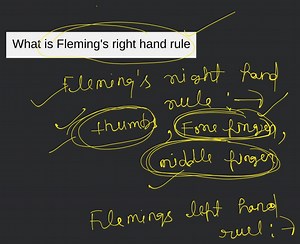 What is Fleming's right hand rule
Fleming's right hand
rule :→
thumb, Fore finger,
middle finger
Flemings left hand
rule :→